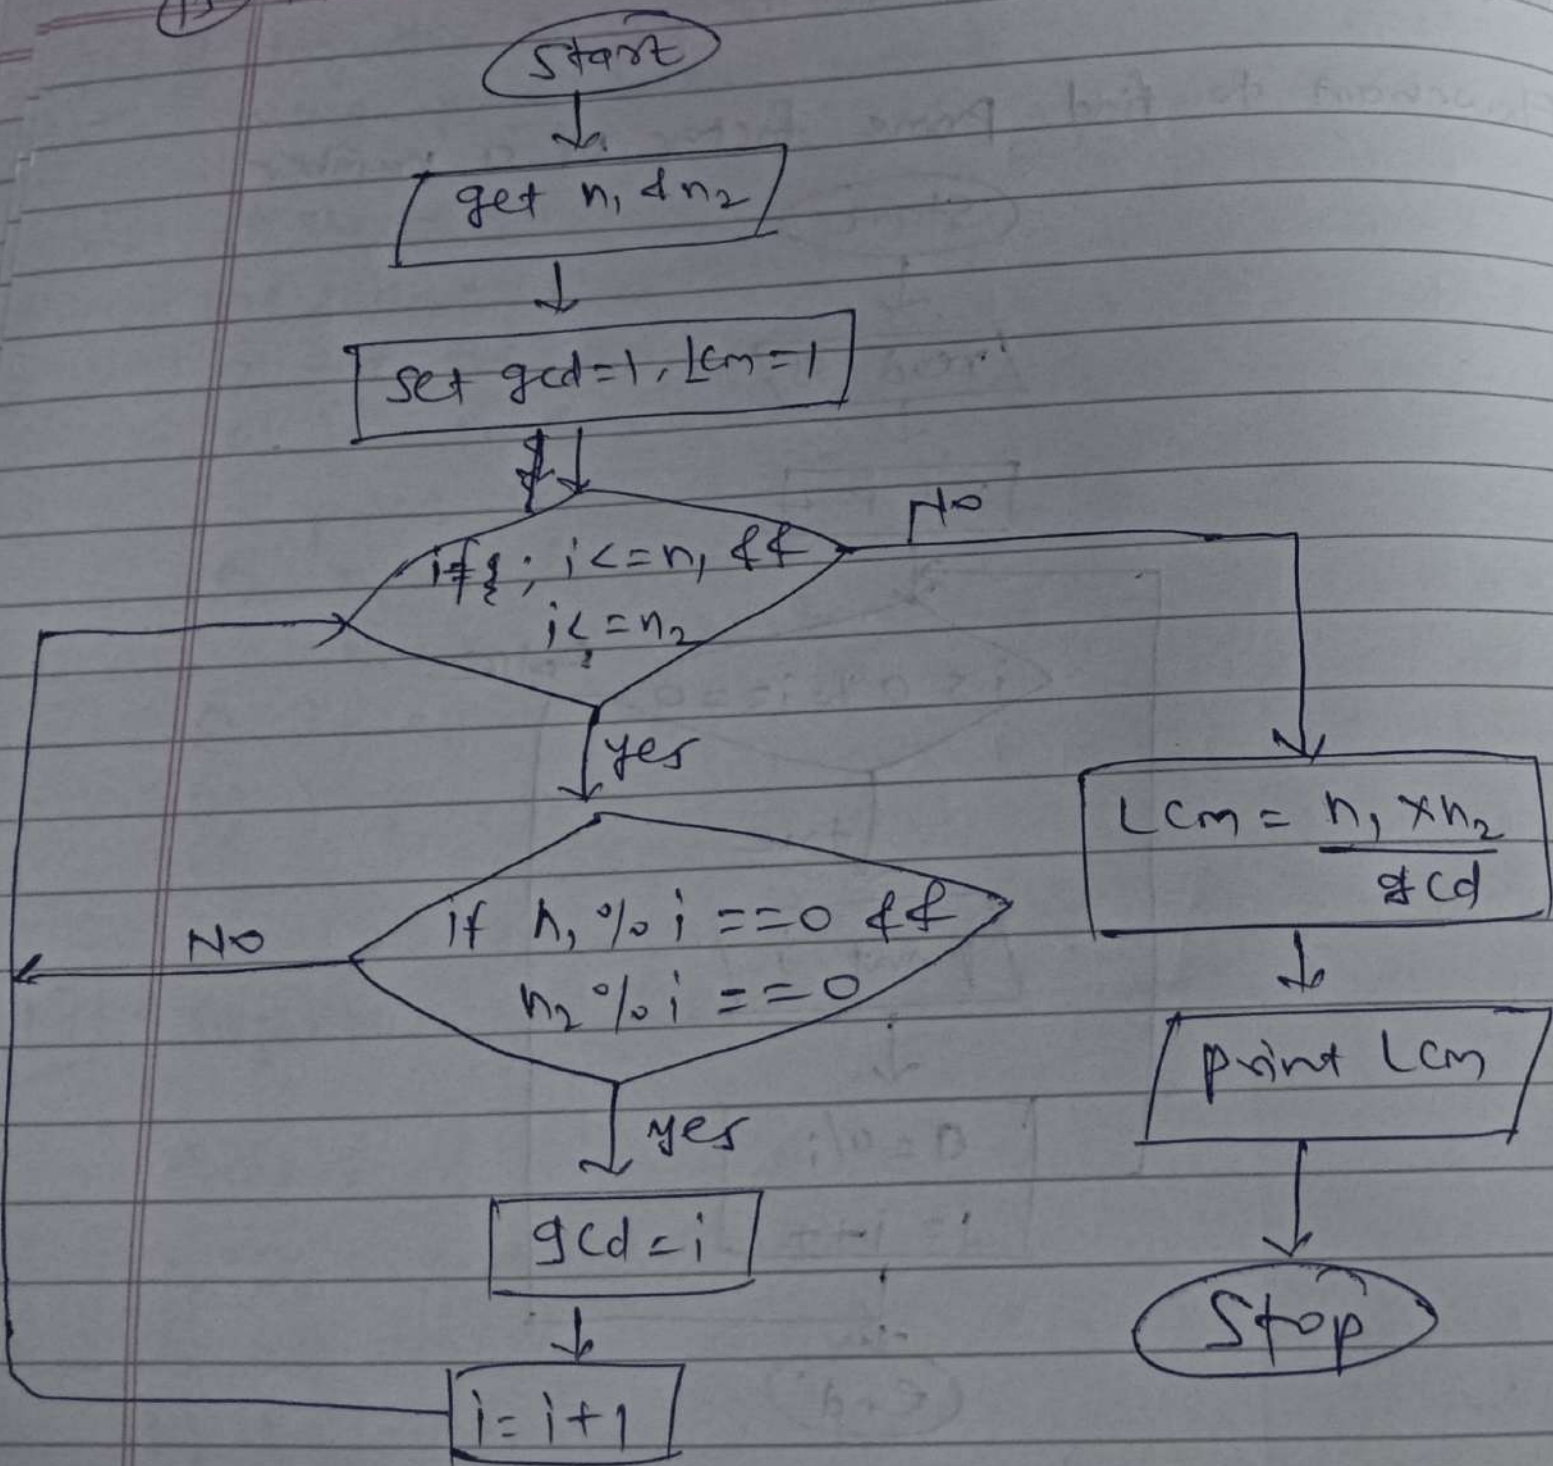 Start
get n₁ & n₂
set gcd=1, Lcm=1
if ; i<=n₁ &&
i<=n₂
No
yes
if n₁ % i ==0 &&
n₂ % i ==0
No
yes
gcd=i
i=i+1
Lcm = n₁ x n₂
gcd
print Lcm
Stop